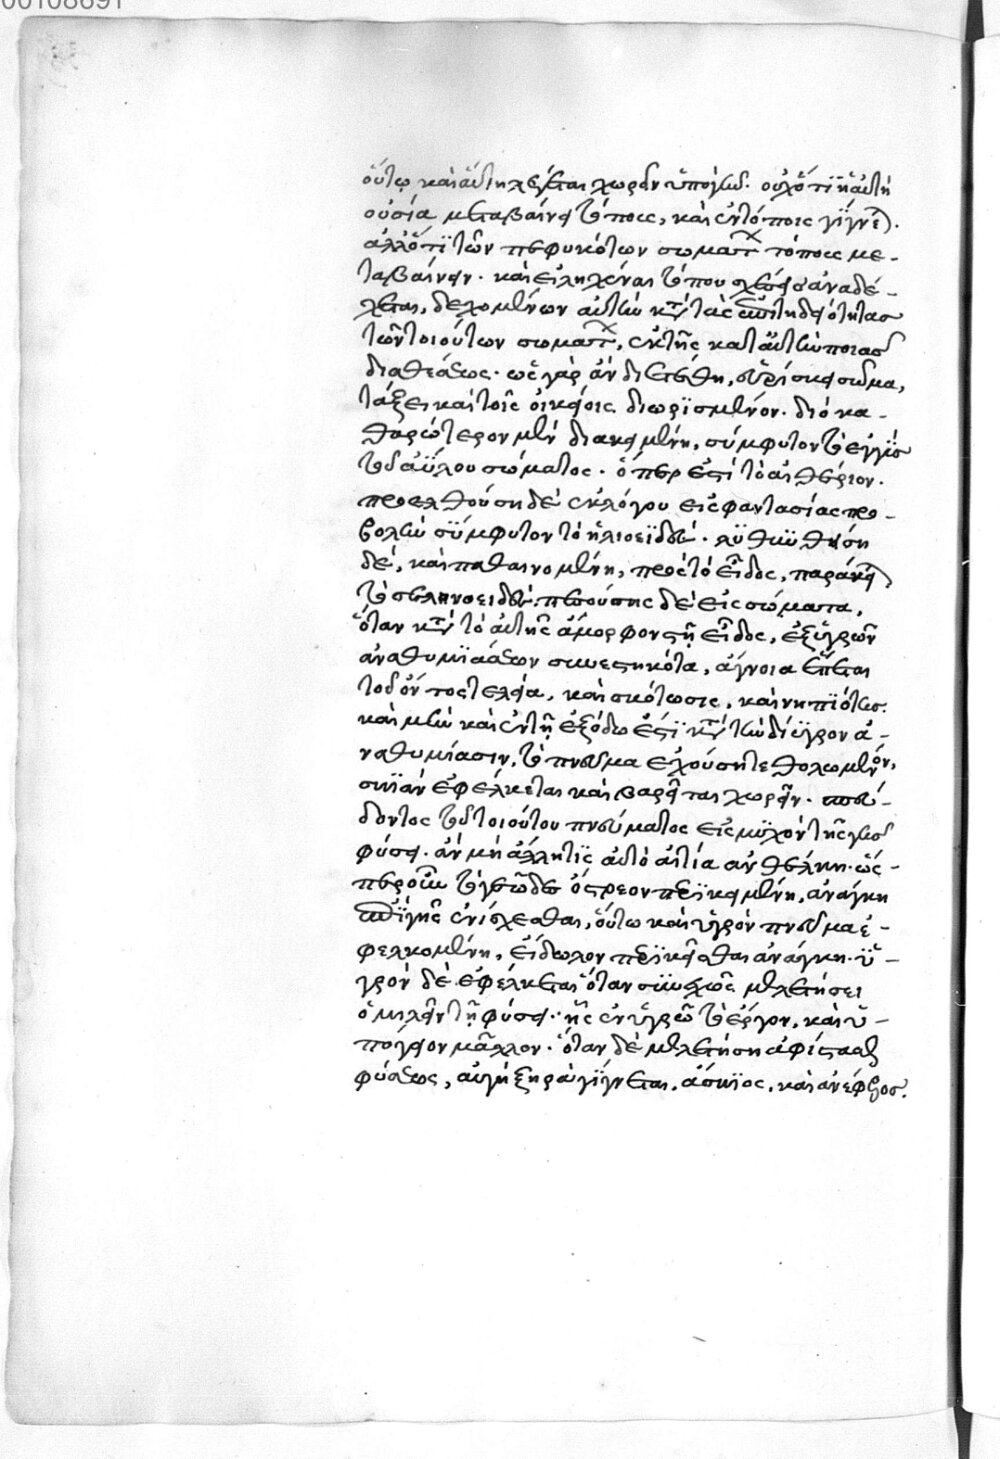 00108691
οὕτω καὶ αὕτη λέγεται χωρεῖν ὑπὸ γῆν. οὐχ ὅτι ἡ αὐτὴ
οὐσία μεταβαίνει τόπους, καὶ ἐν τόποις γίγνεται.
ἀλλ' ὅτι τῶν πεφυκότων σωμάτων τόπους με-
ταβαίνειν. καὶ εἰληχέναι τόπου σχέσεις ἀναδέ-
χεται, δεχομένων αὐτὴν κατὰ τὰς ἐπιτηδειότητας
τῶν τοιούτων σωμάτων, ἐκ τῆς κατ' αὐτὴν ποιᾶς
διαθέσεως. ὡς γὰρ ἂν διετέθη, εὑρίσκει σῶμα,
τάξει καὶ τοῖς οἰκείοις διωρισμένον. διὸ κα-
θαρώτερον μὲν διακειμένη, σύμφυτον τὸ ἐγγὺς
τοῦ ἀΰλου σώματος. ὅπερ ἐστὶ τὸ αἰθέριον.
προελθούση δὲ ἐκ λόγου εἰς φαντασίας προ-
βολὴν σύμφυτον τὸ ἡλιοειδές.
δὲ, καὶ παθαινομένη, πρὸς τὸ εἶδος, παράκειται
τὸ σεληνοειδές. πεσούσης δὲ εἰς σώματα,
ὅταν κατὰ τὸ αὐτῆς ἄμορφον στῇ εἶδος, ἐξ ὑγρῶν
ἀναθυμιάσεων συνεστηκότα, ἄγνοια ἕπεται
τοῦ ὄντος τελεία, καὶ σκότωσις, καὶ νηπιότης.
καὶ μὴν καὶ ἐν τῇ ἐξόδῳ ἔτι κατὰ τὴν δίυγρον ἀ-
ναθυμίασιν, τὸ πνεῦμα ἐχούσης τεθολωμένον,
σκιὰν ἐφέλκεται καὶ βαρεῖται χωρεῖν. σπεύ-
δοντος τοῦ τοιούτου πνεύματος εἰς μυχὸν τῆς γῆς
φύσει. ἂν μὴ ἄλλη τις αὐτὸ αἰτία ἀνθέλκη. ὥς-
περ οὖν τὸ γεῶδες ὄστρεον περικειμένη, ἀνάγκη
ἐπὶ γῆς ἐνίσχεσθαι, οὕτω καὶ ὑγρὸν πνεῦμα ἐ-
φελκομένη, εἴδωλον περικεῖσθαι ἀνάγκη. ὑ-
γρὸν δὲ ἐφέλκεται ὅταν συνεχῶς μελετήσει
ὁμιλεῖν τῇ φύσει. ἧς ἐν ὑγρῷ τὸ ἔργον, καὶ ὑ-
πόγειον μᾶλλον. ὅταν δὲ μελετήση ἀφίστασθαι
φύσεως, αὐγὴ ξηρὰ γίγνεται, ἄσκιος, καὶ ἀνέφελος.